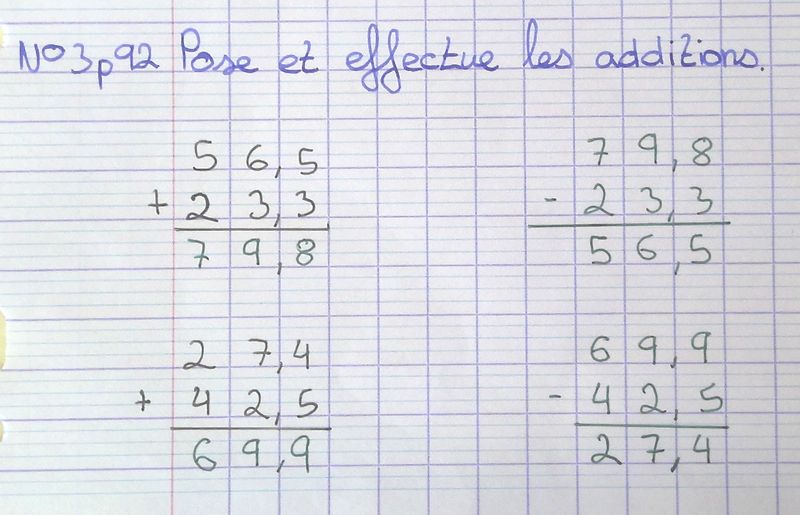 N°3p92 Pose et effectue les additions.
56,5
+ 23,3
79,8
79,8
- 23,3
56,5
27,4
+ 42,5
69,9
69,9
- 42,5
27,4